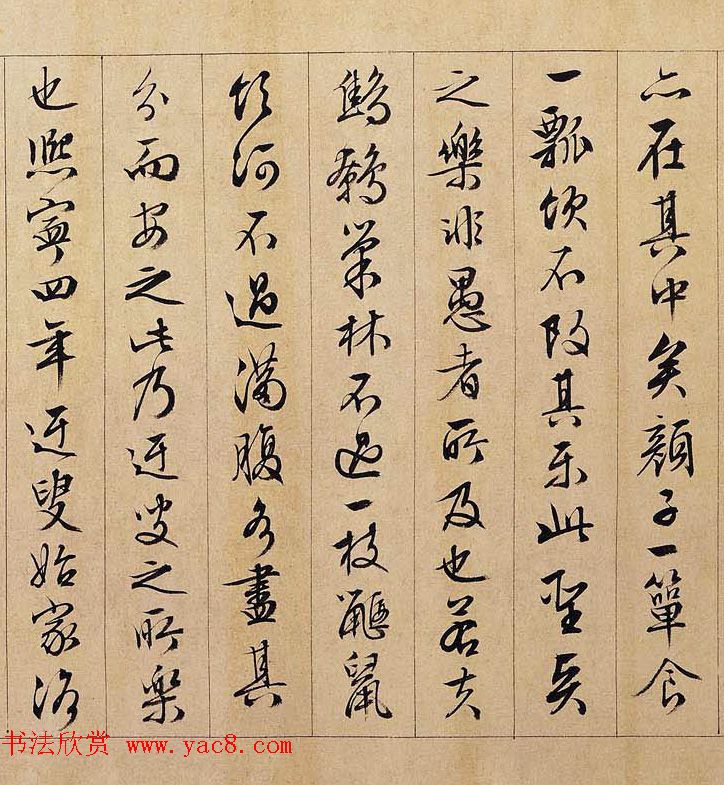 亦在其中矣顏子一簞食
一瓢飲不改其樂此聖賢
之樂非愚者所及也若夫
鷦鷯巢林不過一枝鼴鼠
飲河不過滿腹各盡其
分而安之此乃迂叟之所樂
也熙寧四年迂叟始家洛
书法欣赏 www.yac8.com